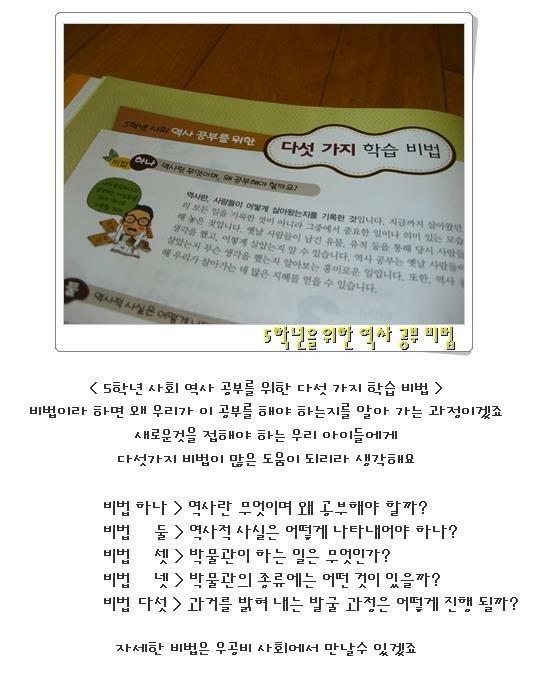 5학년 사회 역사 공부를 위한
다섯 가지 학습 비법
비법 하나 역사란 무엇이며, 왜 공부해야 할까요?
역사란, 사람들이 어떻게 살아왔는지를 기록한 것입니다. 지금까지 살아왔던
의 모든 일을 기록한 것이 아니라 그중에서 중요한 일이나 의미 있는 모습
해 놓은 것입니다. 옛날 사람들이 남긴 유물, 유적 등을 통해 당시 사람들
생각을 했고, 어떻게 살았는지 알 수 있습니다. 역사 공부는 옛날 사람들이
살았는지 무슨 생각을 했는지 알아보는 흥미로운 일입니다. 또한, 역사
해 우리가 살아가는 데 많은 지혜를 얻을 수 있습니다.
둘 역사적 사실은 어떻게
5학년을 위한 역사 공부 비법
< 5학년 사회 역사 공부를 위한 다섯 가지 학습 비법 >
비법이라 하면 왜 우리가 이 공부를 해야 하는지를 알아 가는 과정이겠죠
새로운것을 접해야 하는 우리 아이들에게
다섯가지 비법이 많은 도움이 되리라 생각해요
비법 하나 > 역사란 무엇이며 왜 공부해야 할까?
비법 둘 > 역사적 사실은 어떻게 나타내어야 하나?
비법 셋 > 박물관이 하는 일은 무엇인가?
비법 넷 > 박물관의 종류에는 어떤 것이 있을까?
비법 다섯 > 과거를 밝혀 내는 발굴 과정은 어떻게 진행 될까?
자세한 비법은 우공비 사회에서 만날수 있겠죠